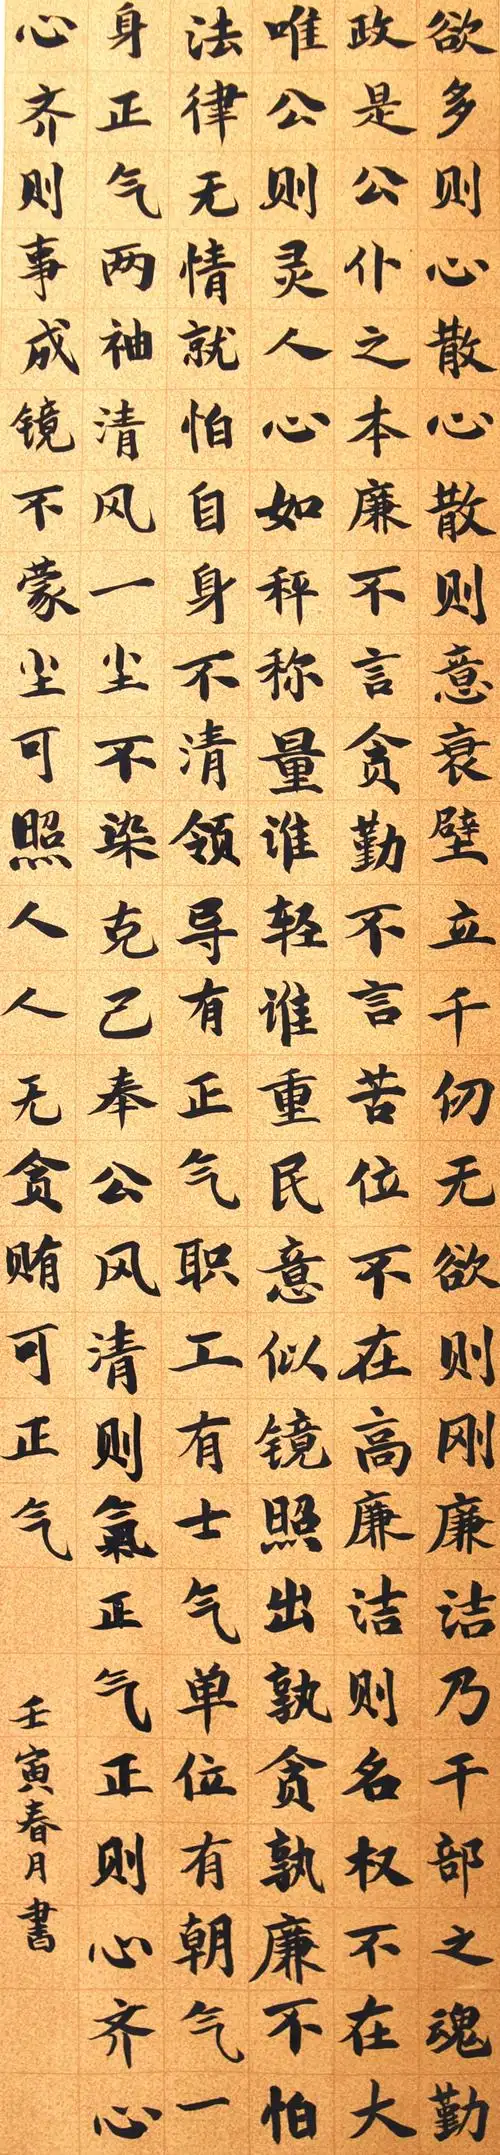 欲多则心散心散则意衰壁立千仞无欲则刚廉洁乃干部之魂勤
政是公仆之本廉不言贪勤不言苦位不在高廉洁则名权不在大
唯公则灵人心如秤称量谁轻谁重民意似镜照出孰贪孰廉不怕
法律无情就怕自身不清领导有正气职工有士气单位有朝气一
身正气两袖清风一尘不染克己奉公风清则氣正气正则心齐心
心齐则事成镜不蒙尘可照人人无贪贿可正气
壬寅春月書